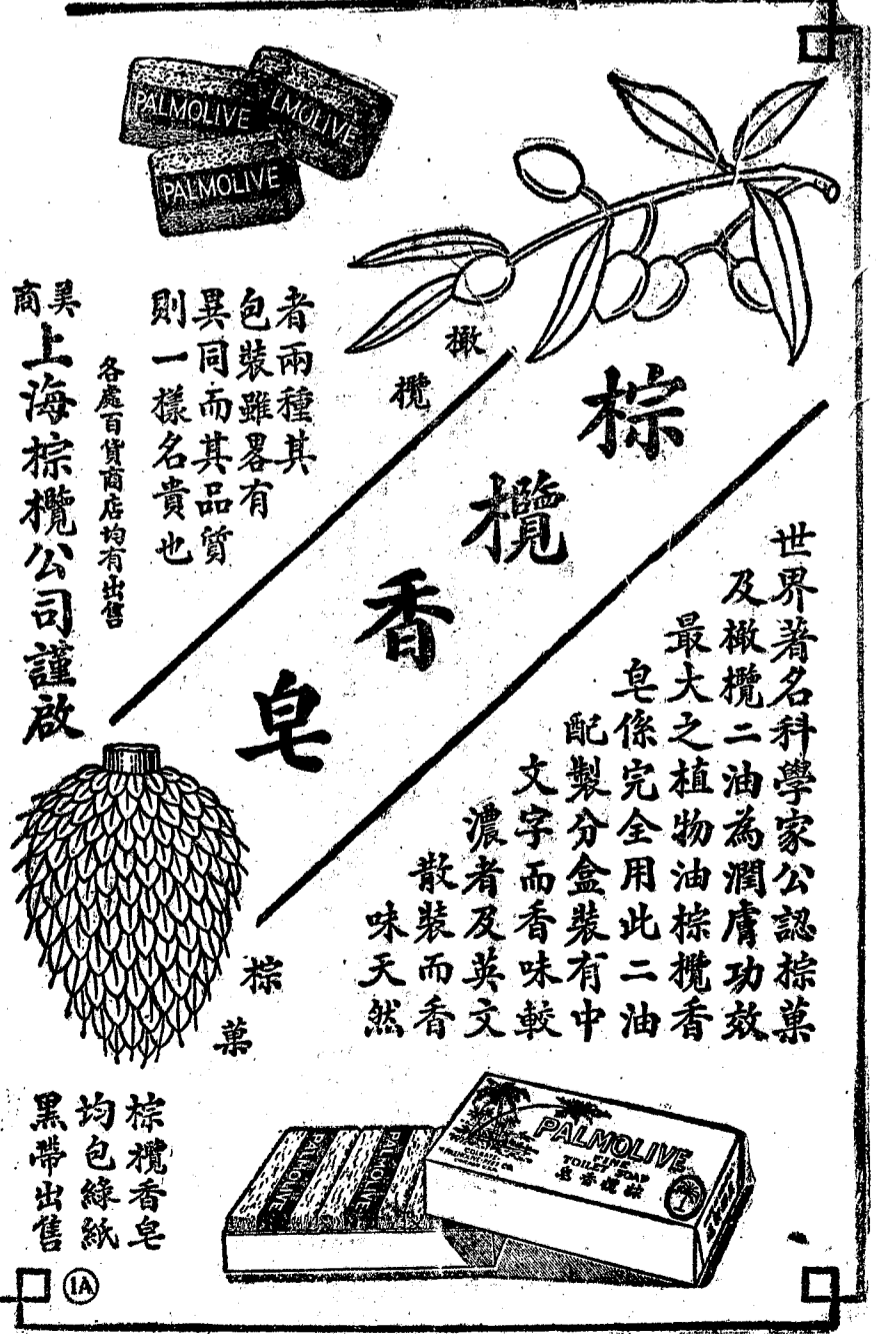 PALMOLIVE
PALMOLIVE
PALMOLIVE
橄欖
棕欖香皂
世界著名科學家公認棕菓
及橄欖二油為潤膚功效
最大之植物油棕欖香
皂係完全用此二油
配製分盒裝有中
文字而香味較
濃者及英文
散裝而香
味天然
者兩種其
包裝雖畧有
異同而其品質
則一樣名貴也
各處百貨商店均有出售
美商
上海棕欖公司謹啟
棕菓
棕欖香皂
均包綠紙
黑帶出售
PALMOLIVE
PALMOLIVE
PALMOLIVE
FINE
TOILET SOAP
皂香欖棕
1A